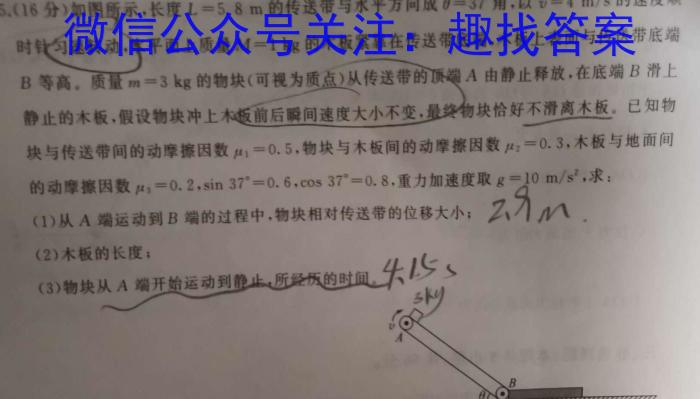 5.(16分)如图所示,长度L=5.8 m的传送带与水平方向成θ=37°角,以v=4 m/s的速度顺
时针
微信公众号关注:趣找答案
B等高。质量m=3 kg的物块(可视为质点)从传送带的顶端A由静止释放,在底端B滑上
静止的木板,假设物块冲上木板前后瞬间速度大小不变,最终物块恰好不滑离木板。已知物
块与传送带间的动摩擦因数μ₁=0.5,物块与木板间的动摩擦因数μ₂=0.3,木板与地面间
的动摩擦因数μ₃=0.2,sin 37°=0.6,cos 37°=0.8,重力加速度取g=10 m/s²,求:
(1)从A端运动到B端的过程中,物块相对传送带的位移大小;
2.9m.
(2)木板的长度;
(3)物块从A端开始运动到静止,所经历的时间.
4.15s
3kg
v
A
B
θ